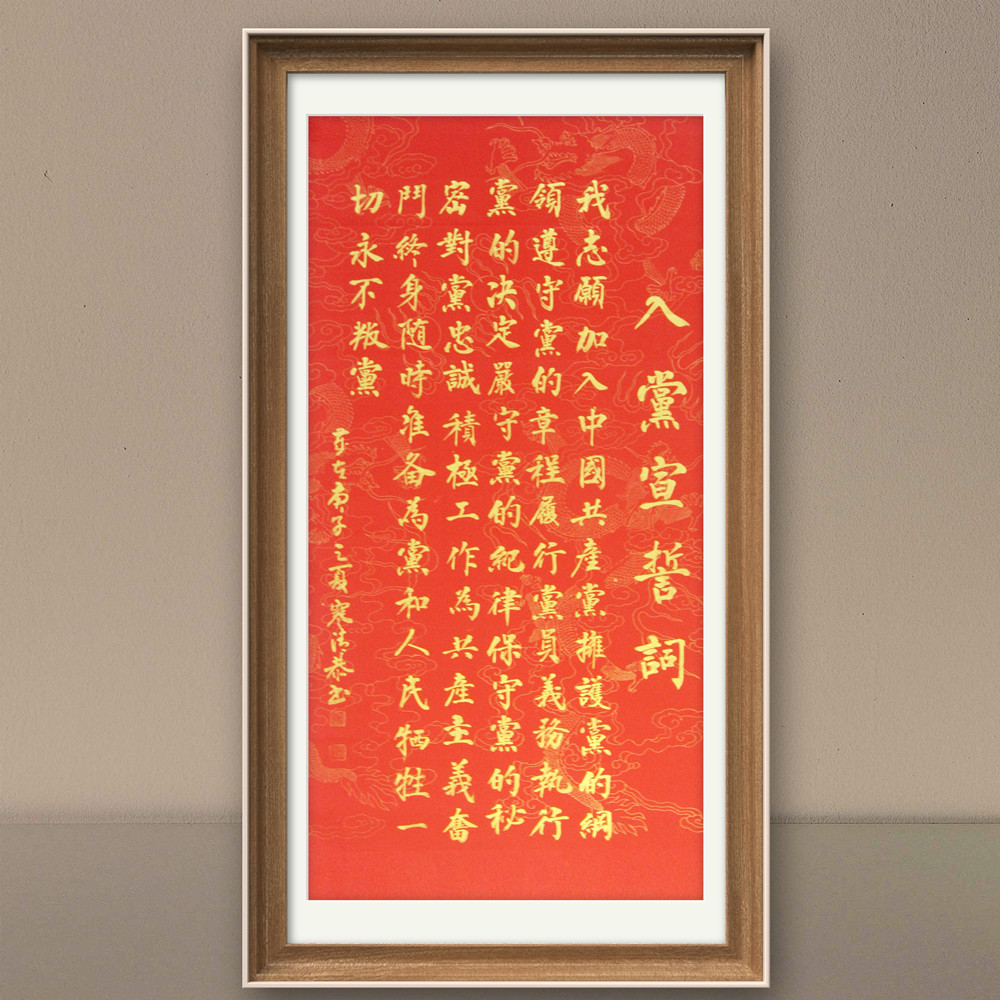 入黨宣誓詞
我志願加入中國共產黨擁護黨的綱
領遵守黨的章程履行黨員義務執行
黨的决定嚴守黨的紀律保守黨的秘
密對黨忠誠積極工作為共產主義奮
鬥終身随時准备為黨和人民牺牲一
切永不叛黨
岁在庚子之夏寇清恭书